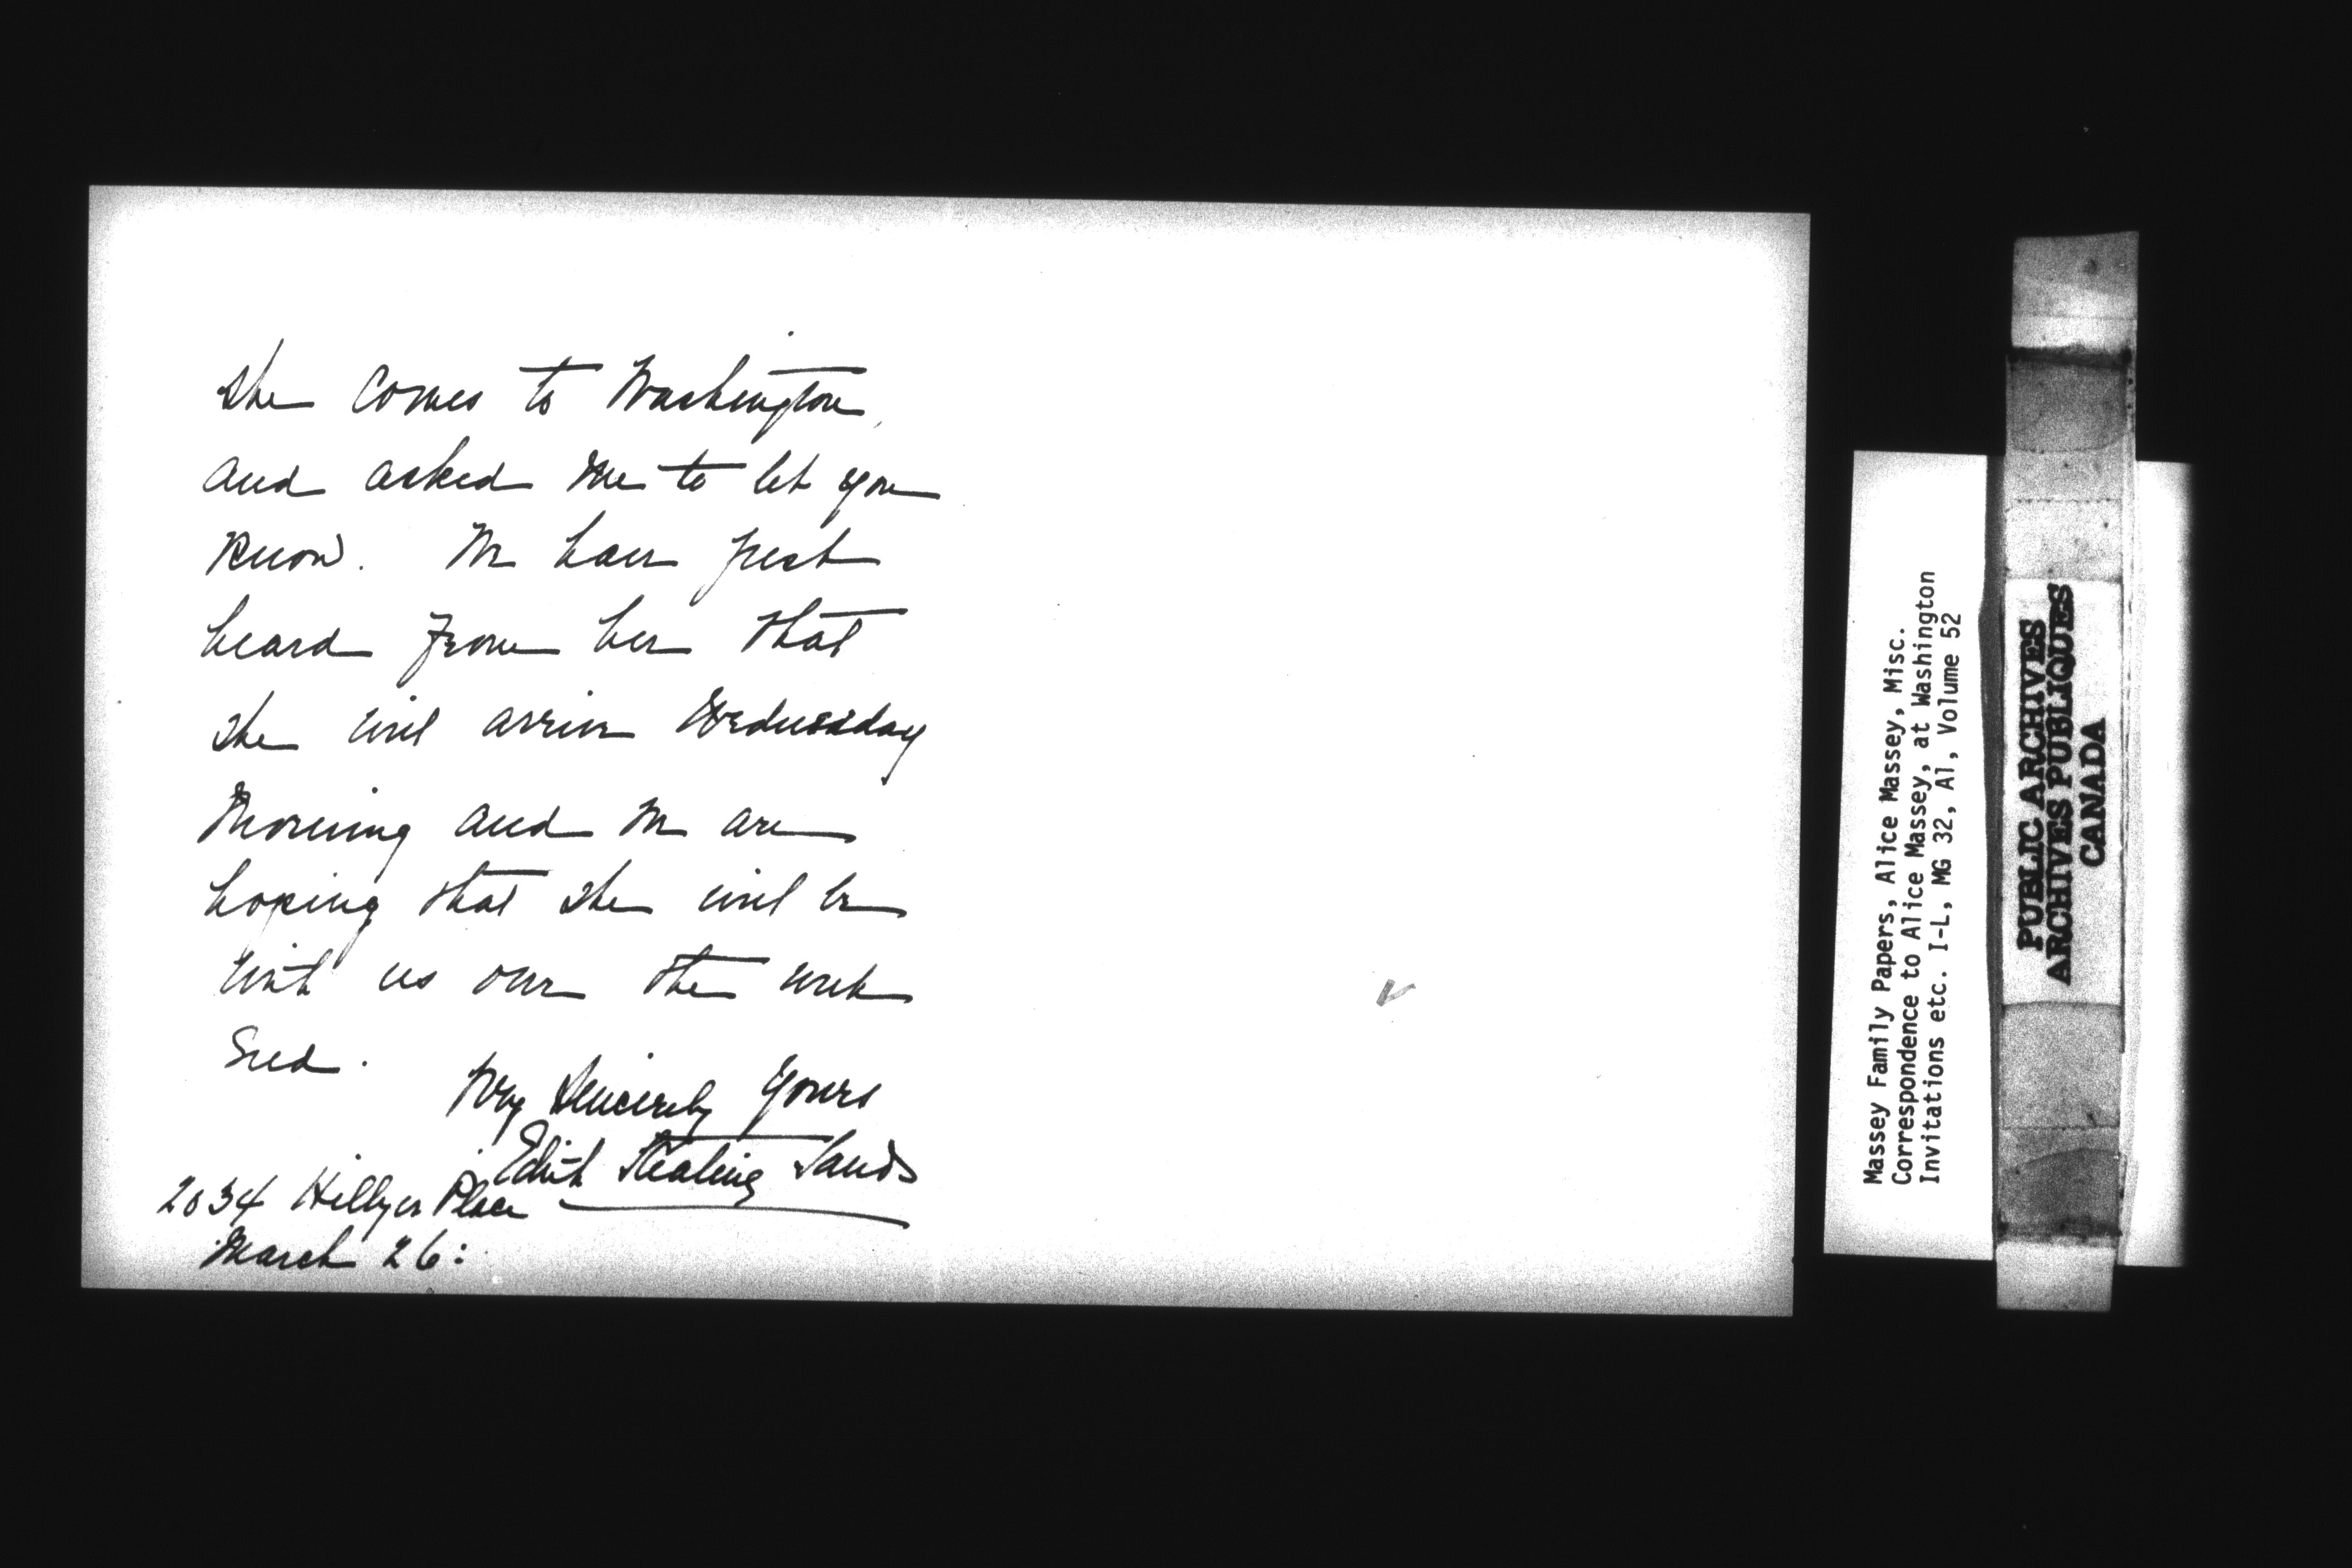 she comes to Washington,
and asked me to let you
know. We have just
heard from her that
she will arrive Wednesday
morning and we are
hoping that she will be
with us over the week
End.
Very Sincerely Yours
Edith Sands
2034 Hillyer Place
March 26:
Massey Family Papers, Alice Massey, Misc.
Correspondence to Alice Massey, at Washington
Invitations etc. I-L, MG 32, A1, Volume 52
PUBLIC ARCHIVES
ARCHIVES PUBLIQUES
CANADA